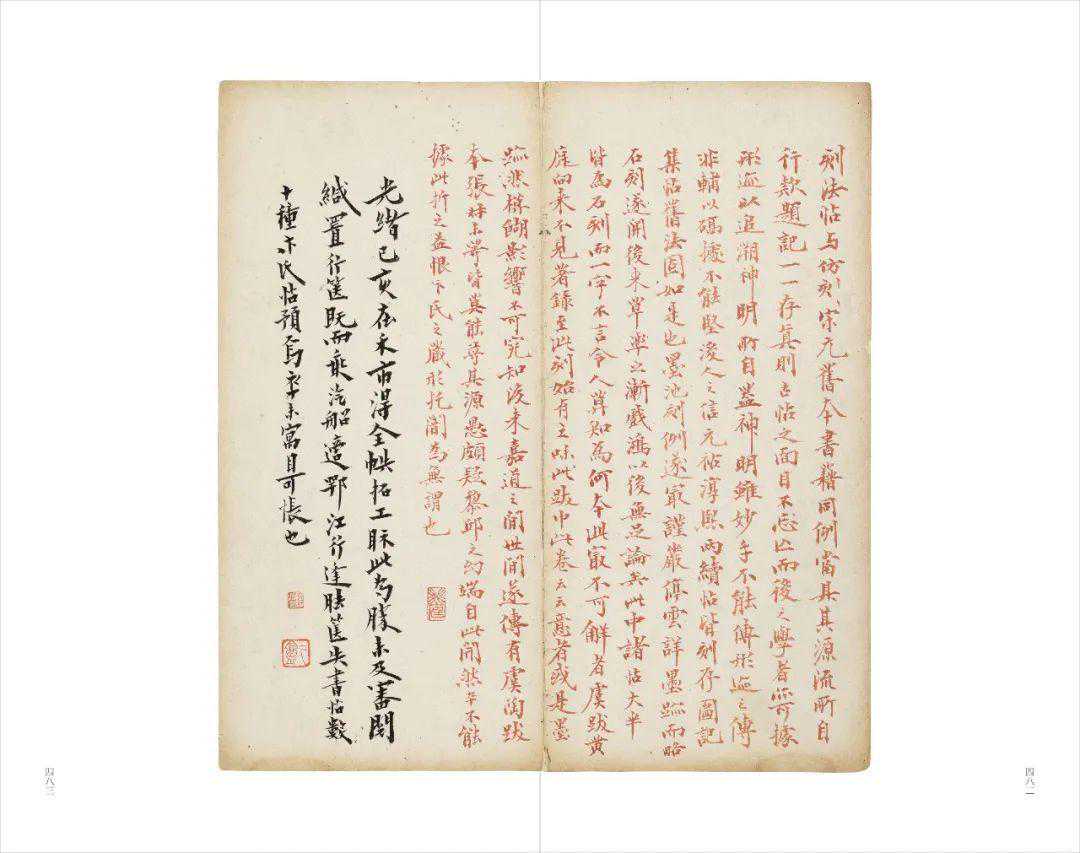 刻法帖与仿刻宋元舊本書籍同例當具其源流所自
行款題記一一存真則古帖之面目不忘而後之學者有所據
形迹以追溯神明所自蓋神明雖妙手不能傳形迹之傳
非輔以碻據不能堅後人之信元祐淳熙兩續帖皆刻存圖記
集帖舊法固如是也墨池刻例遂最謹嚴停雲詳墨跡而略
石刻遂開後來草率之漸戲鴻以後無足論矣此中諸帖大半
皆為石刻而一字不言令人莫知為何本此最不可解者虞跋黄
庭向来不見著録至此刻始有之味此跋中此卷云云意者或是墨
跡然模餬影響不可究知後来嘉道之間世間遂傳有虞
本張
據此折之益恨卞氏之為無謂也
光緒己亥在禾市得全帙拓工眎此為勝未及審閱
緘置行篋既而乘汽船遊鄂江行達胠篋失書帖數
十種卞氏帖預焉卒未寓目可悵也
四八三
四八二